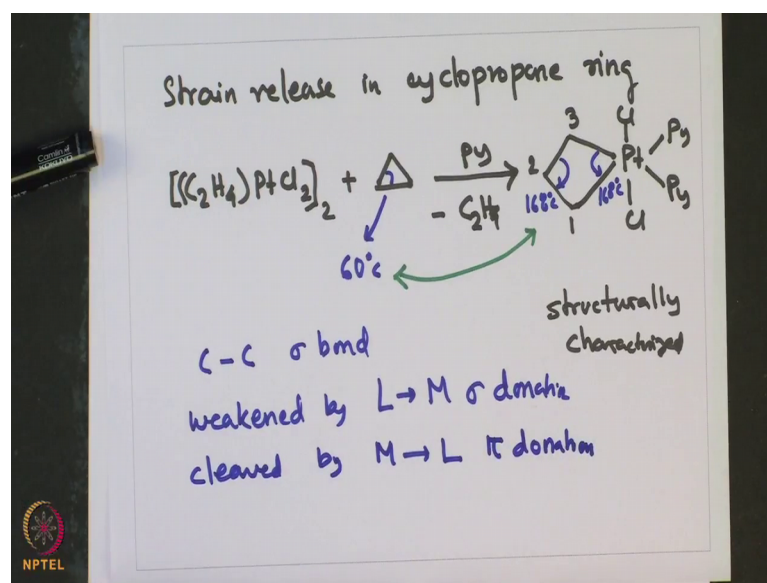 Camlin
KOKUYO
Strain release in cyclopropane ring
[(C₂H₄)PtCl₂]₂ + △ Py → - C₂H₄
3
2
1
168°c
168°c
Cl
Pt
Py
Py
Cl
60°c
structurally
characterized
C-C σ bond
weakened by L→M σ donation
cleaved by M→L π donation
NPTEL